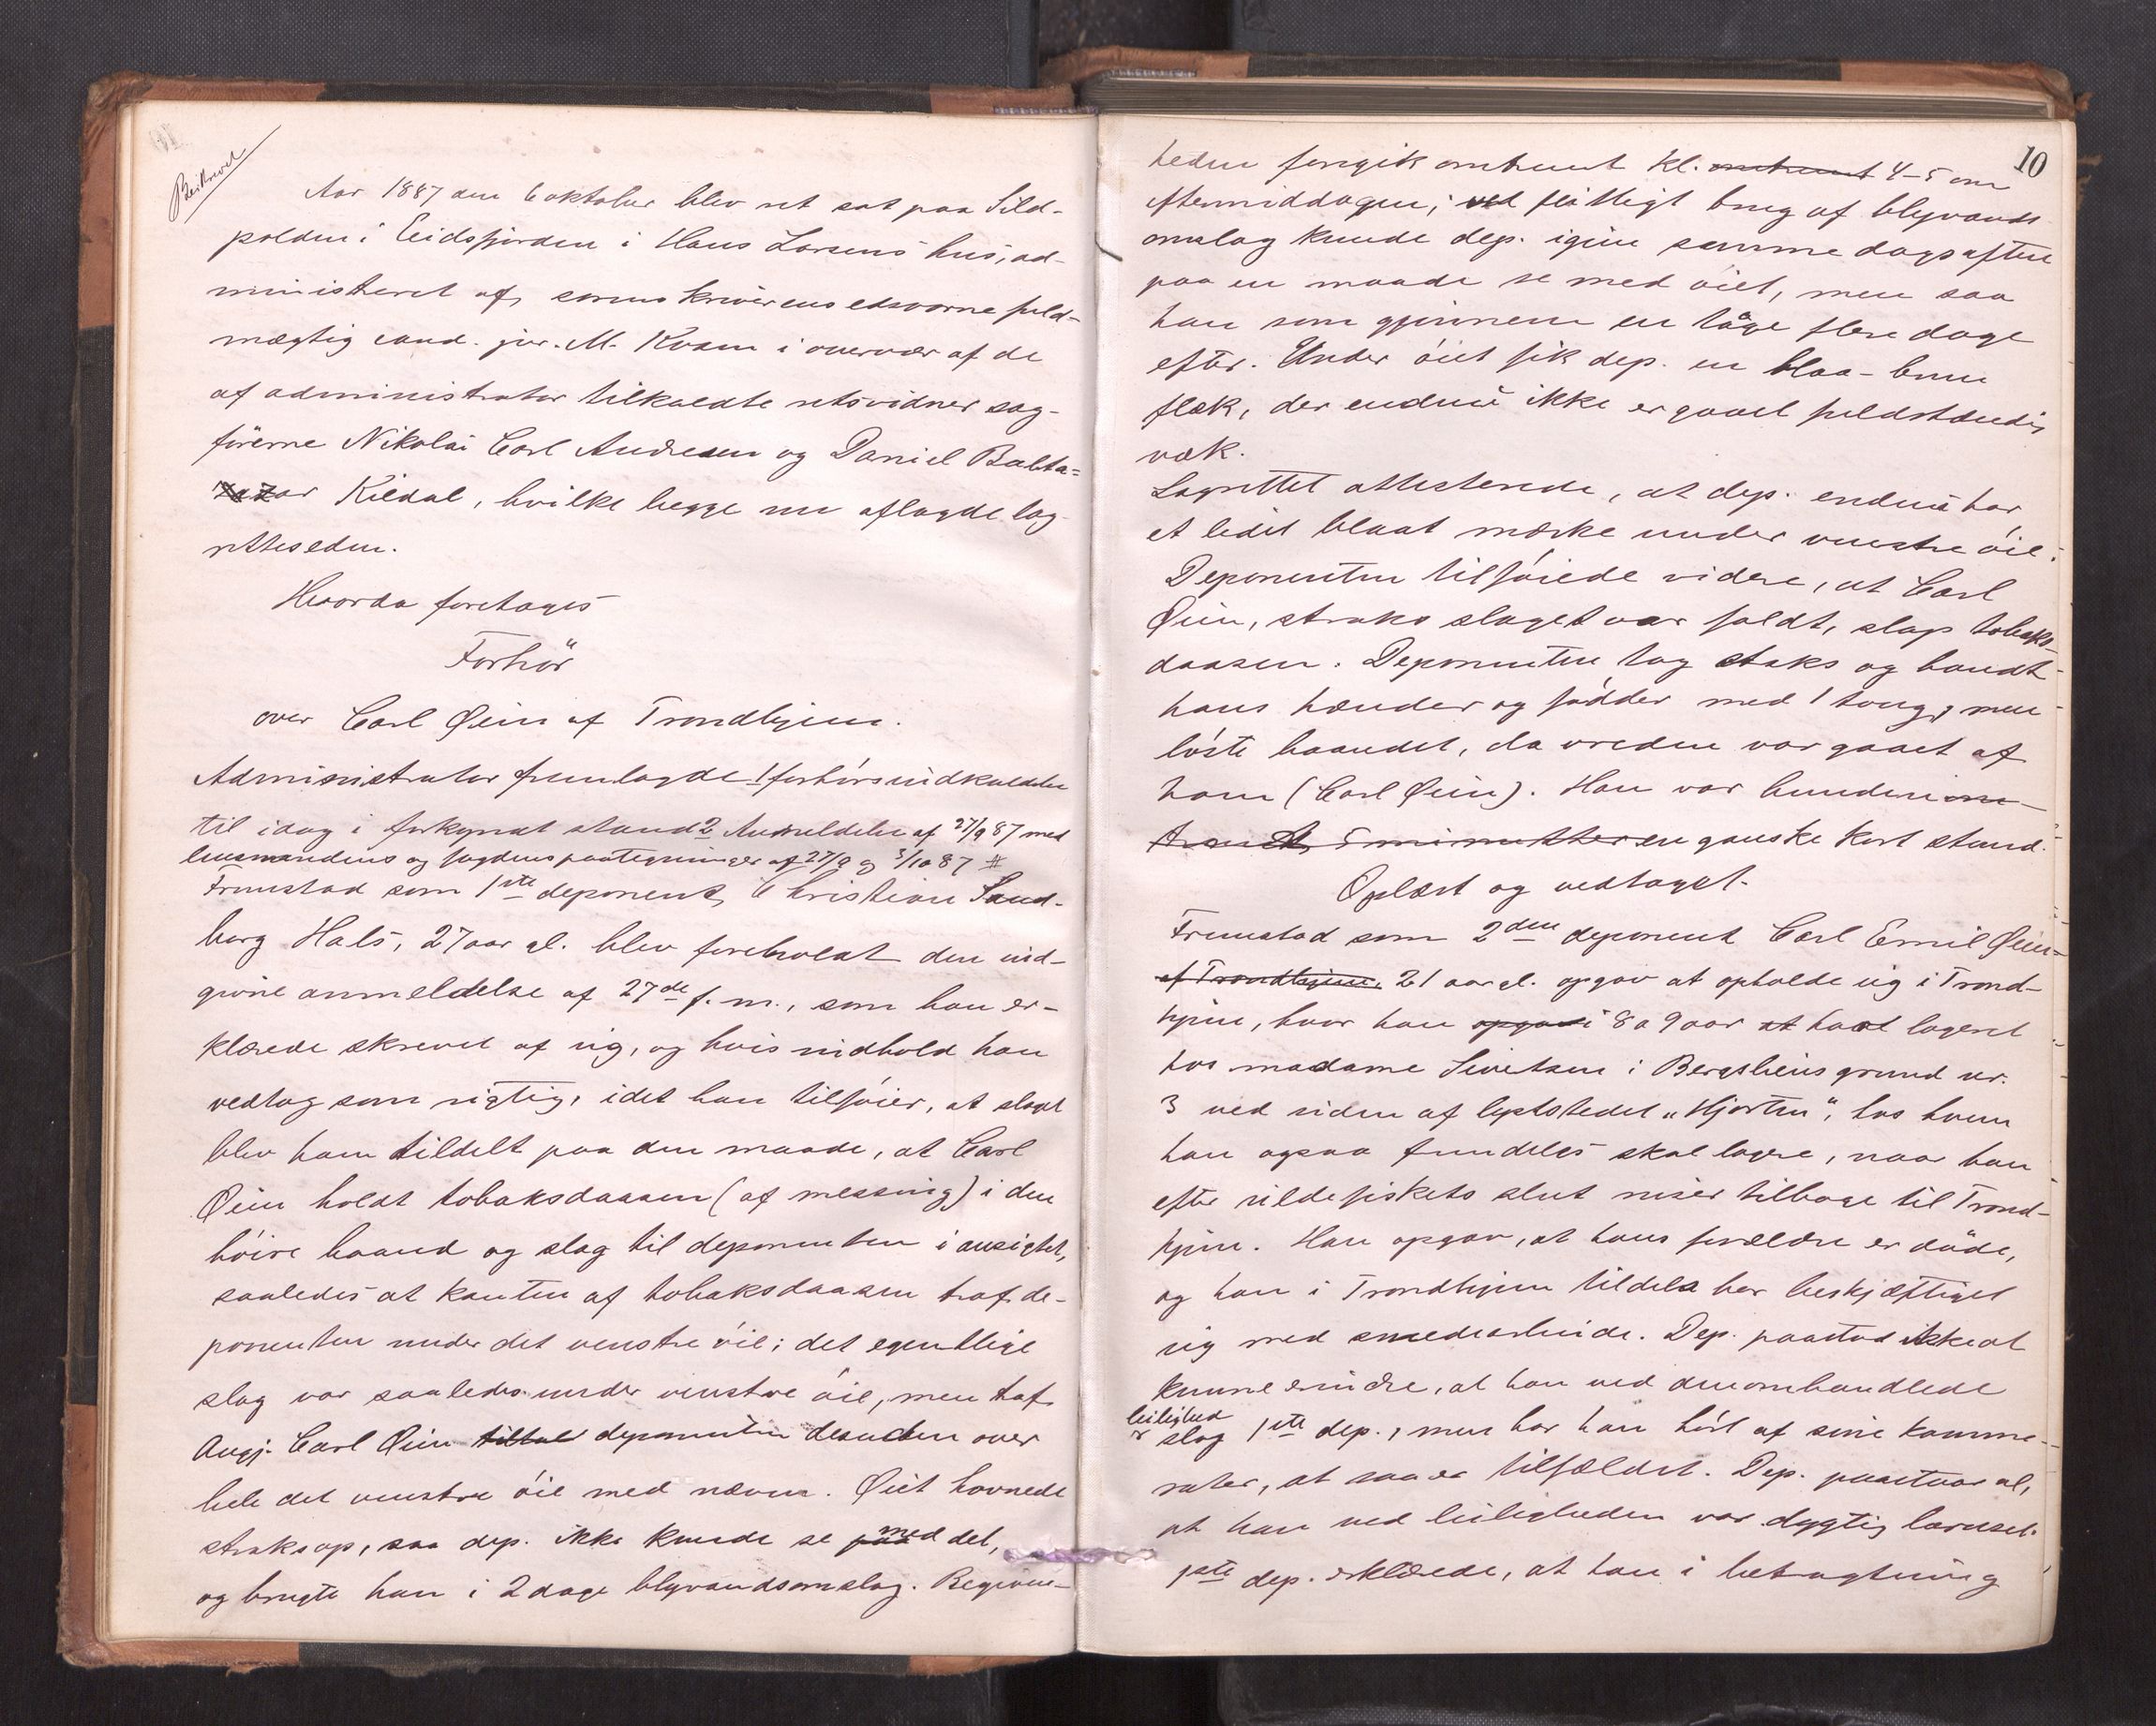 Beskrevet
Aar 1887 den 6 oktober blev ret sat paa Sild-
polden i Eidsfjorden i Hans Larsens hus, ad-
ministeret af sorenskriverens edsvorne fuld-
mægtig cand. jur. M. Kvam i overvær af de
af administrator tilkaldte retsvidner sag-
förerne Nikolai Carl Andresen og Daniel Balta-
zar Kildal, hvilke begge nu aflagde lag-
retteseden.
Hvorda foretoges
Forhör
over Carl Øien af Trondhjem.
Administrator fremlagde 1 forhörsindkaldelse
til idag i forkyndt stand 2 Anmeldelse af 27/9 87 med
lensmandens og fogdens paategninger af 27/9 og 3/10 87 #
Fremstod som 1ste deponent Christian Sand-
berg Hals, 27 aar gl. blev foreholdt den ind-
givne anmeldelse af 27de f. m., som han er-
klærede skrevet af sig, og hvis indhold han
vedtog som rigtig, idet han tilföier, at slaget
blev ham tildelt paa den maade, at Carl
Øien holdt tobaksdaasen (af messing) i den
höire haand og slog til deponenten i ansigtet,
saaledes at kanten af tobaksdaasen traf de-
ponenten under det venstre öie; det egentlige
slag var saaledes under venstre öie, men traf
Angj. Carl Øien tiltal deponenten desuden over
hele det venstre öie med næven. Øiet hovnede
straks op, saa dep. ikke kunde se med det,
og brugte han i 2 dage blyvandsomslag. Begiven-
10
heden foregik omtrent kl. omtrent 4-5 om
eftermiddagen; ved flittigt brug af blyvands
omslag kunde dep. igjen samme dags aften
paa en maade se med öiet, men saa
han som gjennem en tåge flere dage
efter. Under öiet fik dep. en blaa-brun
flæk, der endnu ikke er gaaet fuldstændig
væk.
Lagrettet attesterede, at dep. endnu har
et lidet blaat mærke under venstre öie.
Deponenten tilföiede videre, at Carl
Øien, straks slaget var faldt, slap tobaks-
daasen. Deponenten tog straks og bandt
hans hænder og födder med 1 toug, men
löste baandet, da vreden var gaaet af
ham (Carl Øien). Han var bunden om-
trent 5 minutter en ganske kort stund.
Oplæst og vedtaget.
Fremstod som 2den deponent Carl Emil Øien
af Trondhjem, 21 aar gl. opgav at opholde sig i Trond-
hjem, hvor han opgav i 8 a 9 aar at havt logeret
hos madame Sivertsen i Bergsliens grund nr.
3 ved siden af lyststedet „Hjorten“, hos hvem
han ogsaa fremdeles skal logere, naar han
efter sildefiskets slut reiser tilbage til Trond-
hjem. Han opgav, at hans forældre er döde,
og han i Trondhjem tildels har beskjæftiget
sig med smedearbeide. Dep. paastod ikke at
kunne erindre, at han ved den omhandlede
leilighed
slog 1ste dep., men har han hört af sine kamme-
rater, at saa er tilfældet. Dep. paastaar at,
at han ved leiligheden var dygtig beruset.
1ste dep. erklærede, at han i betragtning